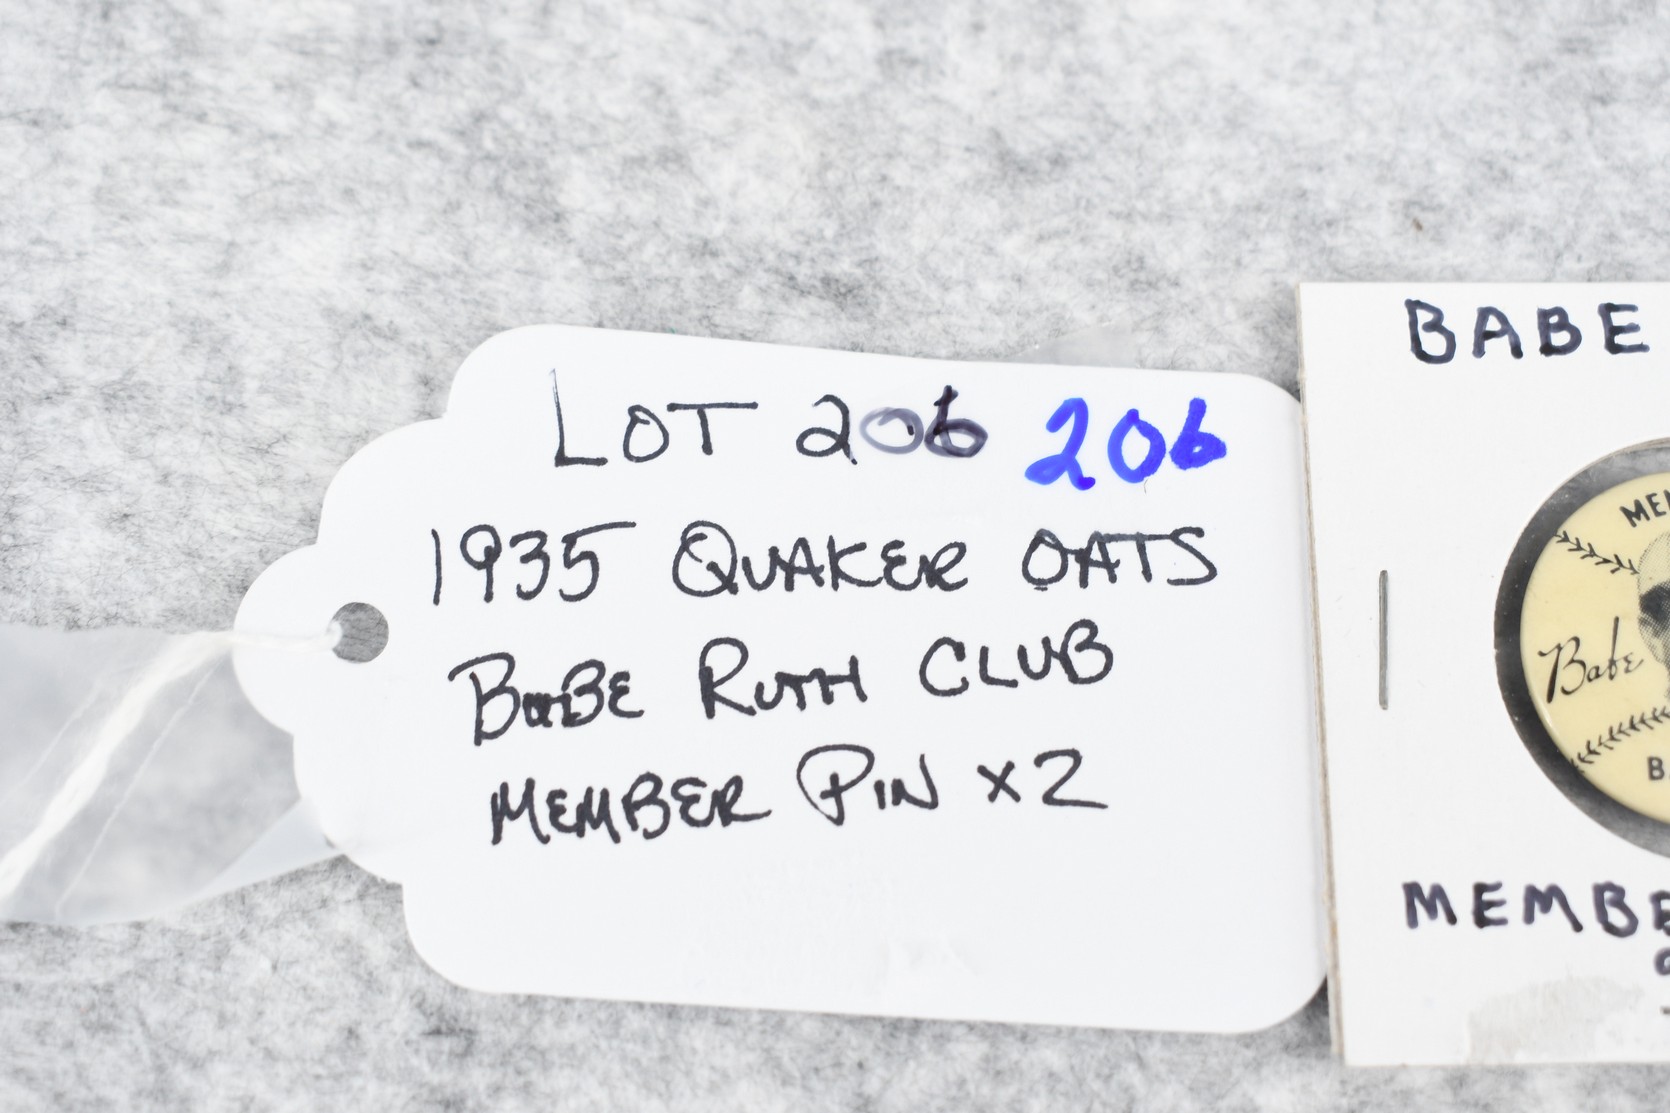 LOT 206 206
1935 QUAKER OATS
BABE RUTH CLUB
MEMBER PIN X2
BABE
Babe